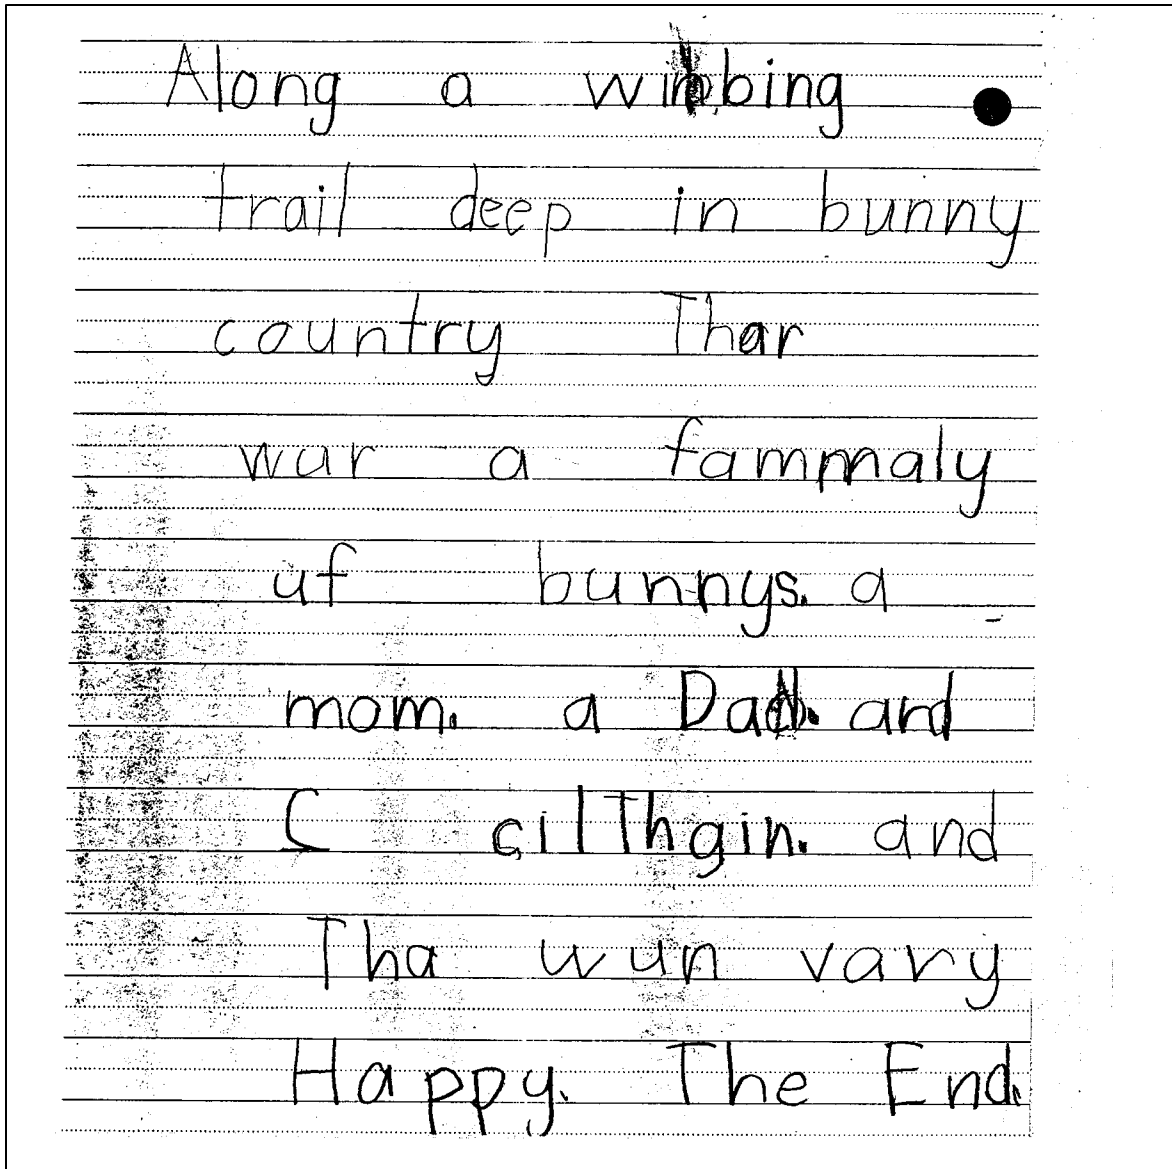 Along a winbing
trail deep in bunny
country Thar
wur a fammaly
uf bunnys. a
mom. a Dad. and
cilThgin. and
Tha wun vary
Happy. The End.